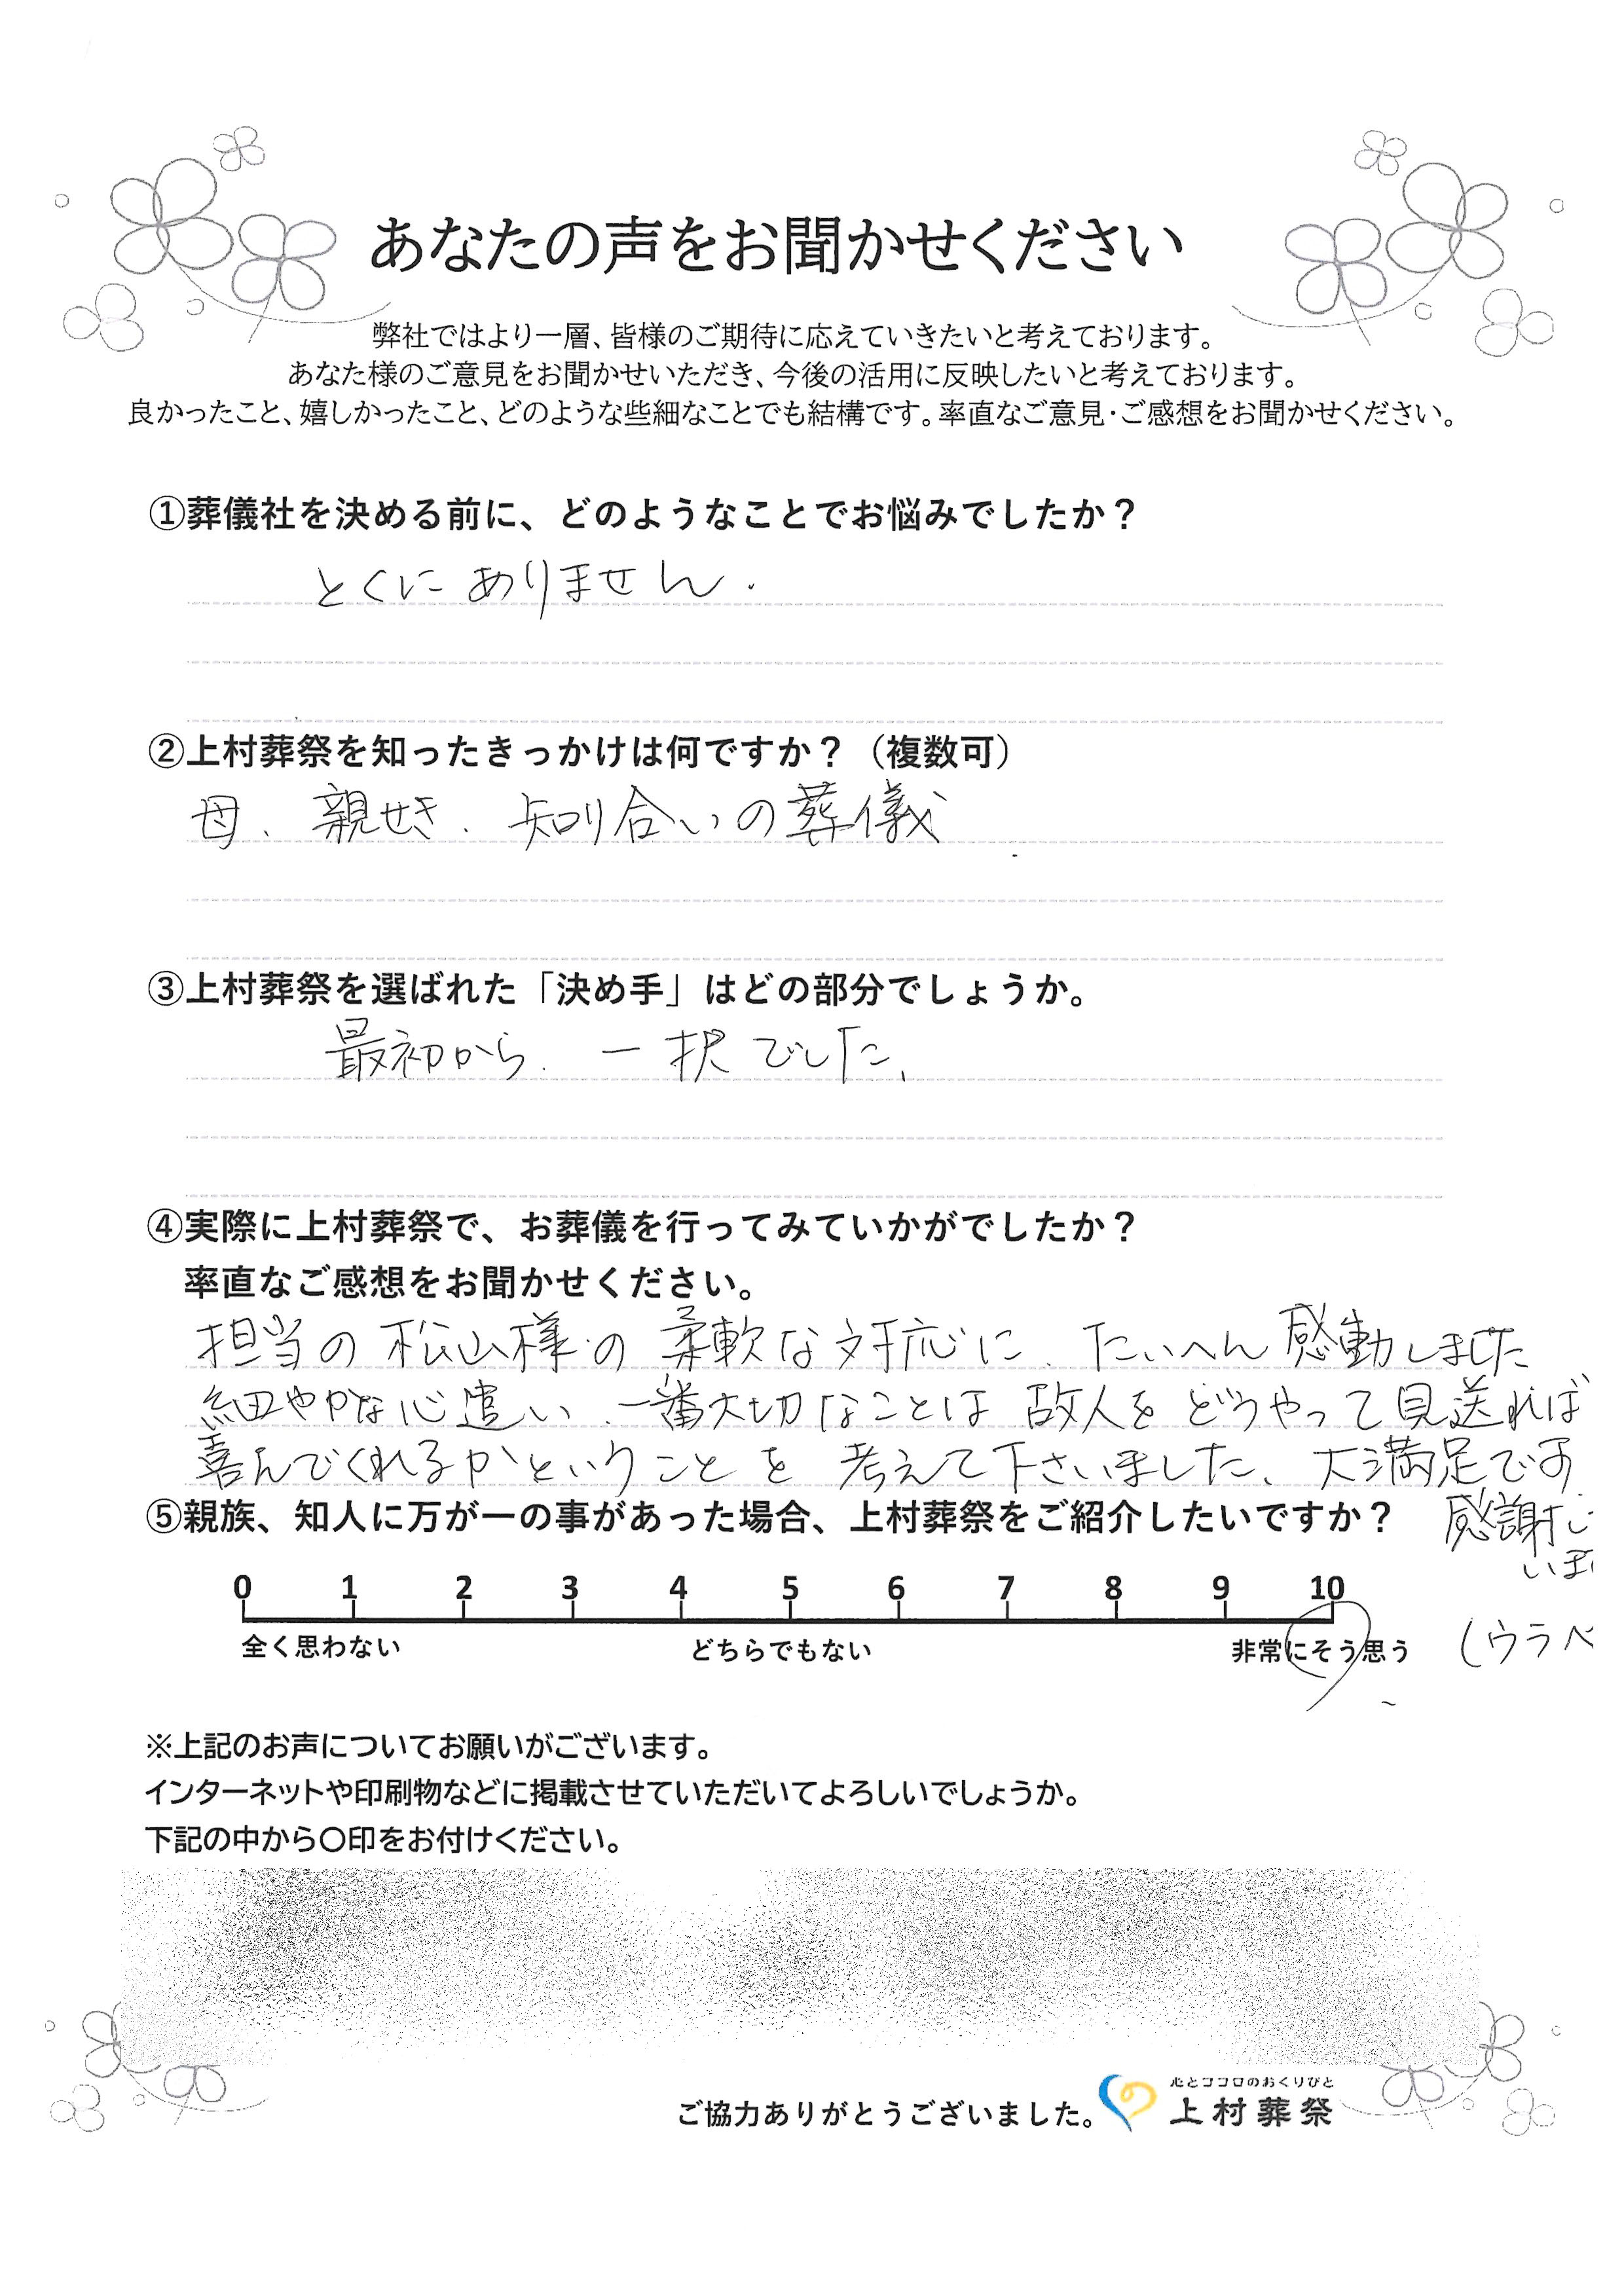 あなたの声をお聞かせください
弊社ではより一層、皆様のご期待に応えていきたいと考えております。
あなた様のご意見をお聞かせいただき、今後の活用に反映したいと考えております。
良かったこと、嬉しかったこと、どのような些細なことでも結構です。率直なご意見・ご感想をお聞かせください。
①葬儀社を決める前に、どのようなことでお悩みでしたか？
とくにありません.
②上村葬祭を知ったきっかけは何ですか？（複数可）
母、親せき、知り合いの葬儀
③上村葬祭を選ばれた「決め手」はどの部分でしょうか。
最初から、一択でした、
④実際に上村葬祭で、お葬儀を行ってみていかがでしたか？
率直なご感想をお聞かせください。
担当の松山様の柔軟な対応に、たいへん感動しました
細やかな心遣い、一番大切なことは故人をどうやって見送れば
喜んでくれるかということを考えて下さいました、大満足です
⑤親族、知人に万が一の事があった場合、上村葬祭をご紹介したいですか？
感謝し
0 1 2 3 4 5 6 7 8 9 10
全く思わない どちらでもない 非常にそう思う
(ウラへ
※上記のお声についてお願いがございます。
インターネットや印刷物などに掲載させていただいてよろしいでしょうか。
下記の中から〇印をお付けください。
ご協力ありがとうございました。
心とココロのおくりびと
上村葬祭